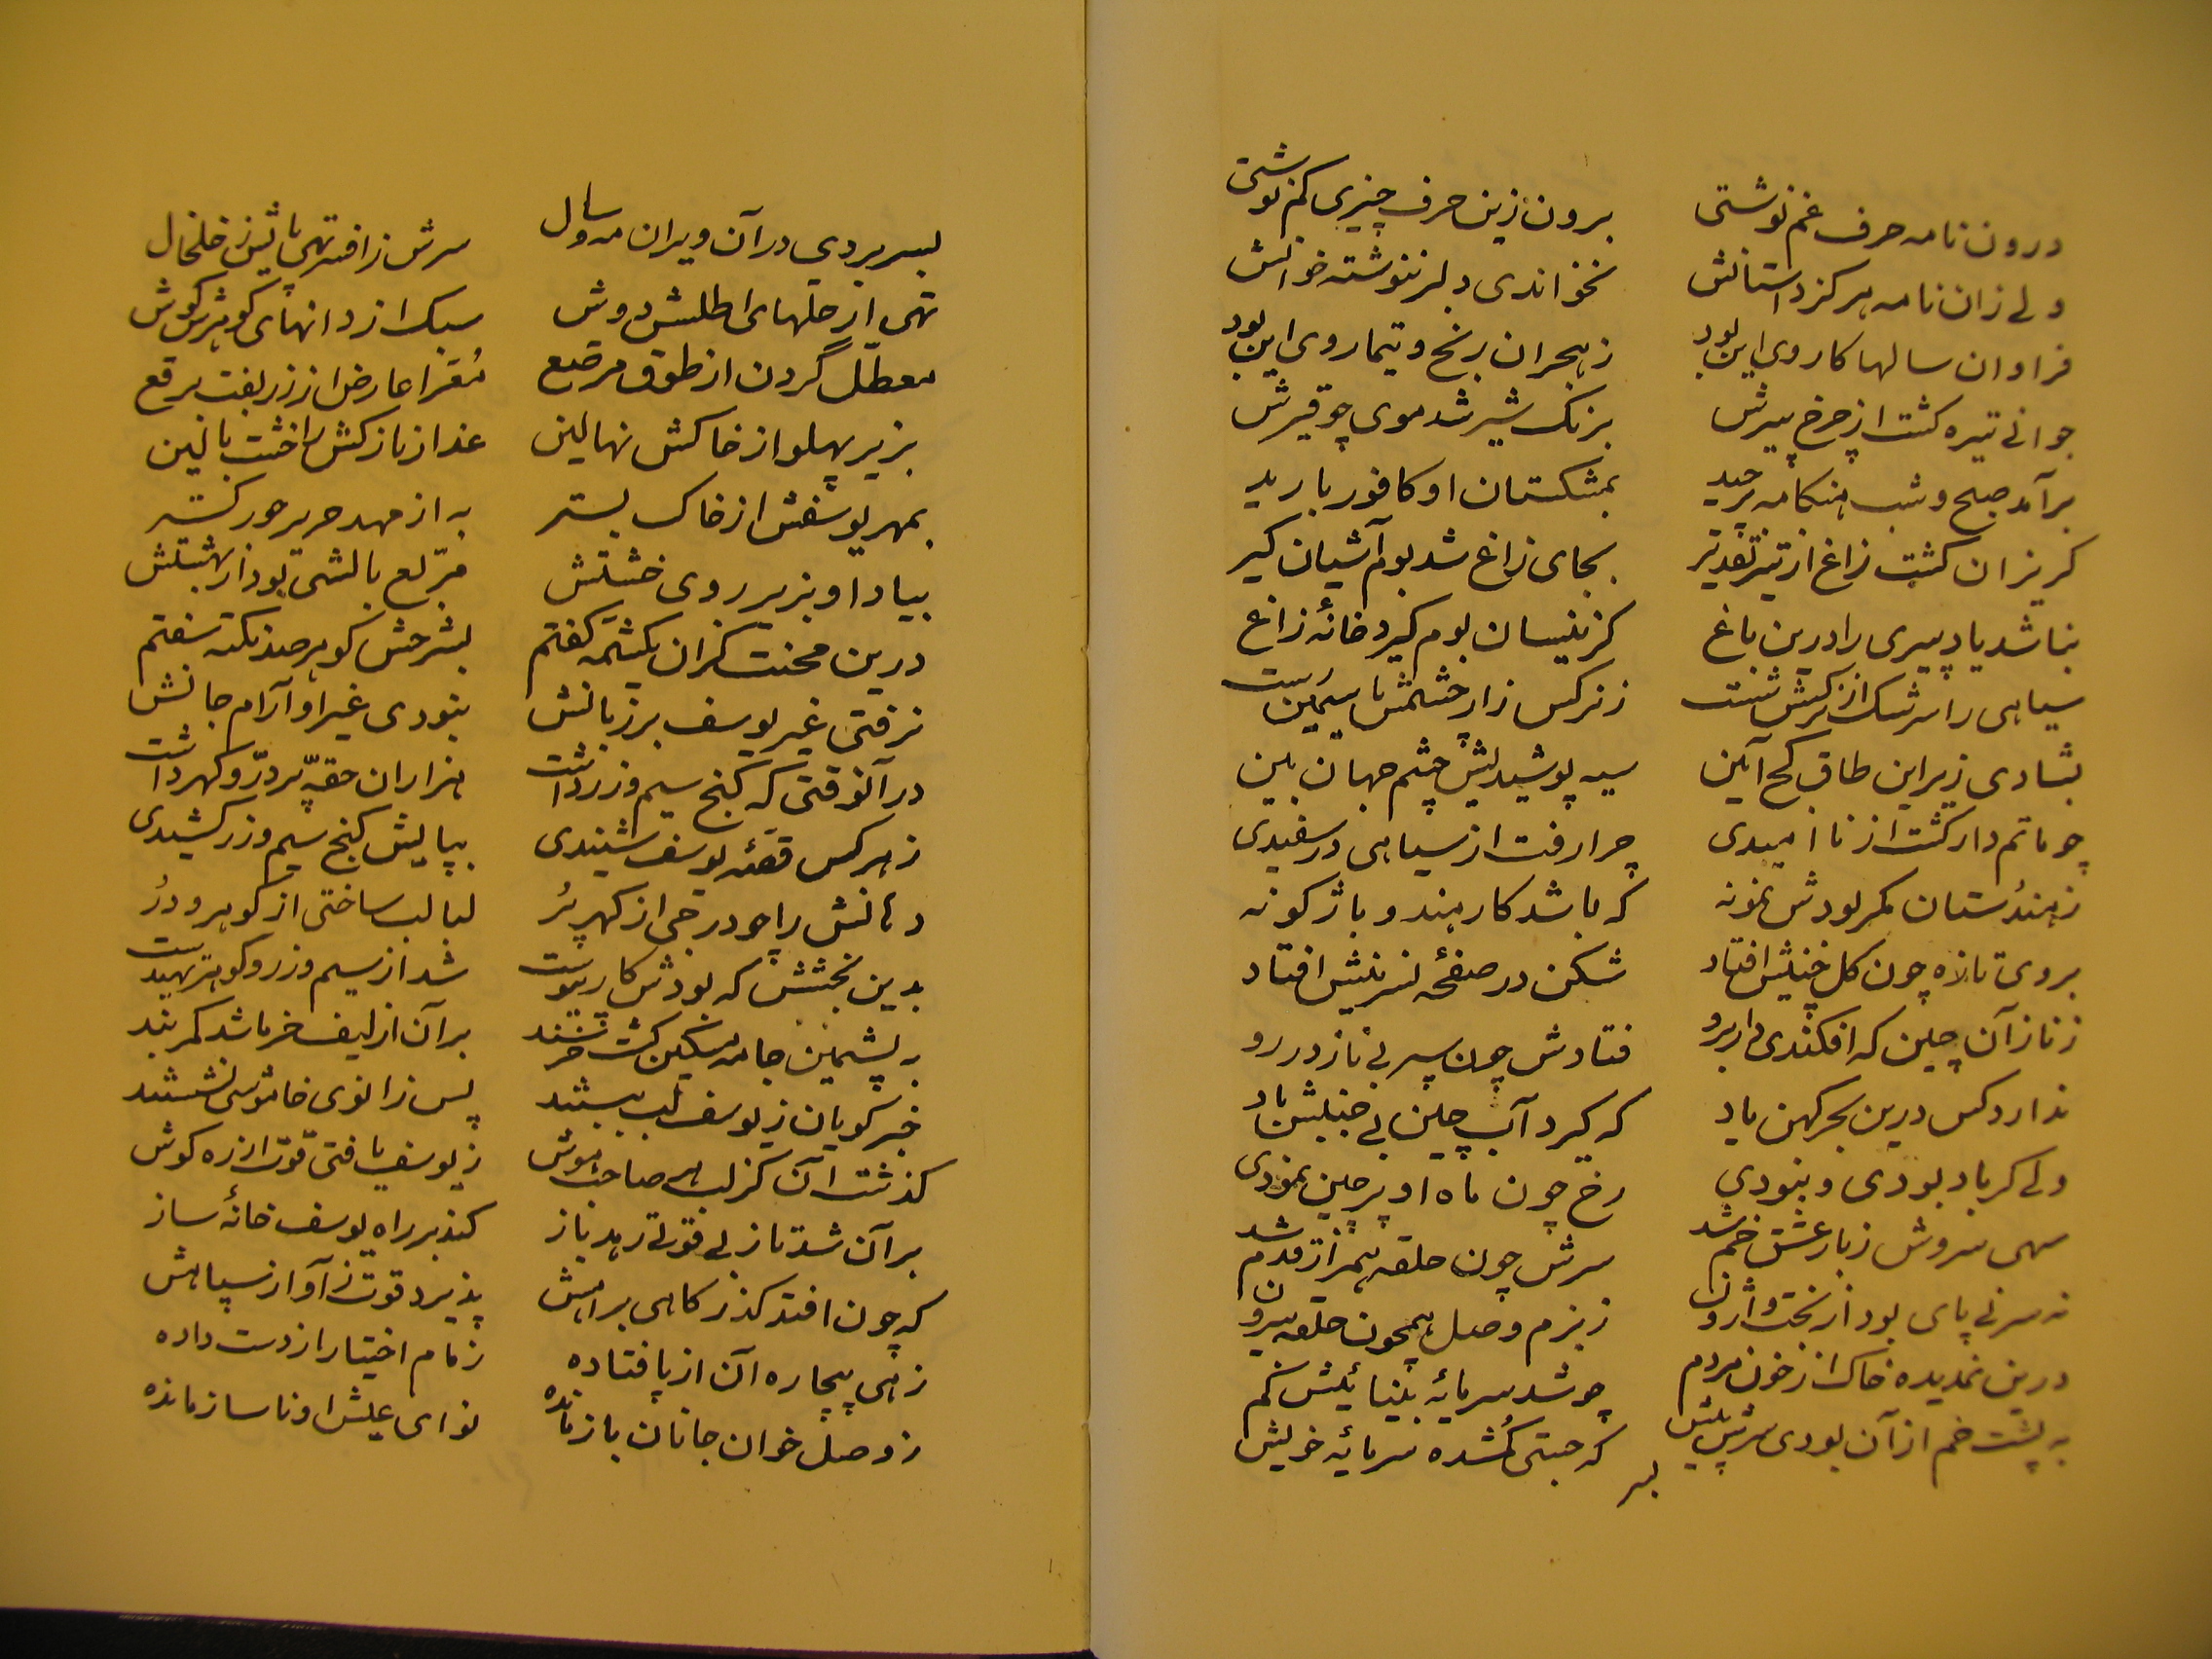 درون نامه حرف غم نوشتی برون زین حرف چیزی کم نوشتی
ولی زان نامه هرکز داستانش نخواندی دلبر ننوشته خوانش
فراوان سالها کار وی این بود ز هجران رنج و تیمار وی این بود
جوانی تیره کشت از چرخ پیرش برنک شیر شد موی چو قیرش
برآمد صبح و شب هنکامه برچید بمشکستان او کافور بارید
کریزان کشت زاغ از تیر تقدیر بجای زاغ شد بوم آشیان کیر
نباشد یاد پیری را درین باغ کزینسان بوم کیرد خانهٔ زاغ
سیاهی را سرشک از نرکسش شست ز نرکس زار چشمش یاسمین رست
بشادی زیر این طاق کج آیین سیه پوشیدیش چشم جهان بین
چو ماتم دار کشت از نا امیدی چرا رفت از سیاهی در سفیدی
ز هندُستان مکر بودش نمونه که باشد کار هندو باژکونه
بروی تازه چون کل چینش افتاد شکن در صفحهٔ نسرینش افتاد
ز ناز آن چین که افکندی در ابرو فتادش چون سپر بی ناز در رو
ندارد کس درین بحر کهن یاد که کیرد آب چین بی جنبش باد
ولی کر باد بودی و نبودی رخ چون ماه او پرچین نمودی
سهی سروش ز بار عشق خم شد سرش چون حلقه همراز قدم شد
نه سر نی پای بود از بخت واژون ز بزم وصل همچون حلقه بیرون
درین نمدیده خاک از خون مردم چو شد سرمایهٔ بینائیش کم
به پشت خم از آن بودی سرش پیش که جستی کم‌شده سرمایهٔ خویش
بسر
بسر بردی در آن ویران مه و سال سرش ز افسر تهی پاش ز خلخال
تهی از حلهای اطلسش دوش سبک از دانهای کوهرش کوش
معطّل گردن از طوق مرصّع مُعَرا عارض از زربفت برقع
بزیر پهلو از خاکش نهالین عذار نازکش را خشت بالین
بمهر یوسفش از خاک بستر به از مهد حریر حور کستر
بیاد او بزیر روی خشتش مربّع بالشی بود از بهشتش
درین محنت کزان یکشمّه کفتم بشرحش کوهر صد نکته سفتم
نرفتی غیر یوسف بر زبانش نبودی غیر او آرام جانش
در آنوقتی که کنج سیم و زر داشت هزاران حقهّ پر درّ و کهر داشت
ز هر کس قصّهٔ یوسف شنیدی بپایش کنج سیم و زر کشیدی
دهانش را چو درجی از کهر پُر لبالب ساختی از کوهر و دُر
بدین بخشش که بودش کار پیوست شد از سیم و زر و کوهر تهیدست
به پشمین جامه مسکین کشت خرسند بر آن از لیف خرما شد کمربند
خبر کویان ز یوسف لب ببستند پس زانوی خاموشی نشستند
کذشت آن کز لب صاحب هوش ز یوسف یافتی قوت از ره کوش
بر آن شد تا ز بی قوتی رهد باز کند بر راه یوسف خانهٔ ساز
که چون افتد کذر کاهی براهش پذیرد قوت ز آواز سپاهش
زهی بیچاره آن از پا فتاده زمام اختیار از دست داده
ز وصل خوان جانان باز مانده نوای عیش او ناساز مانده